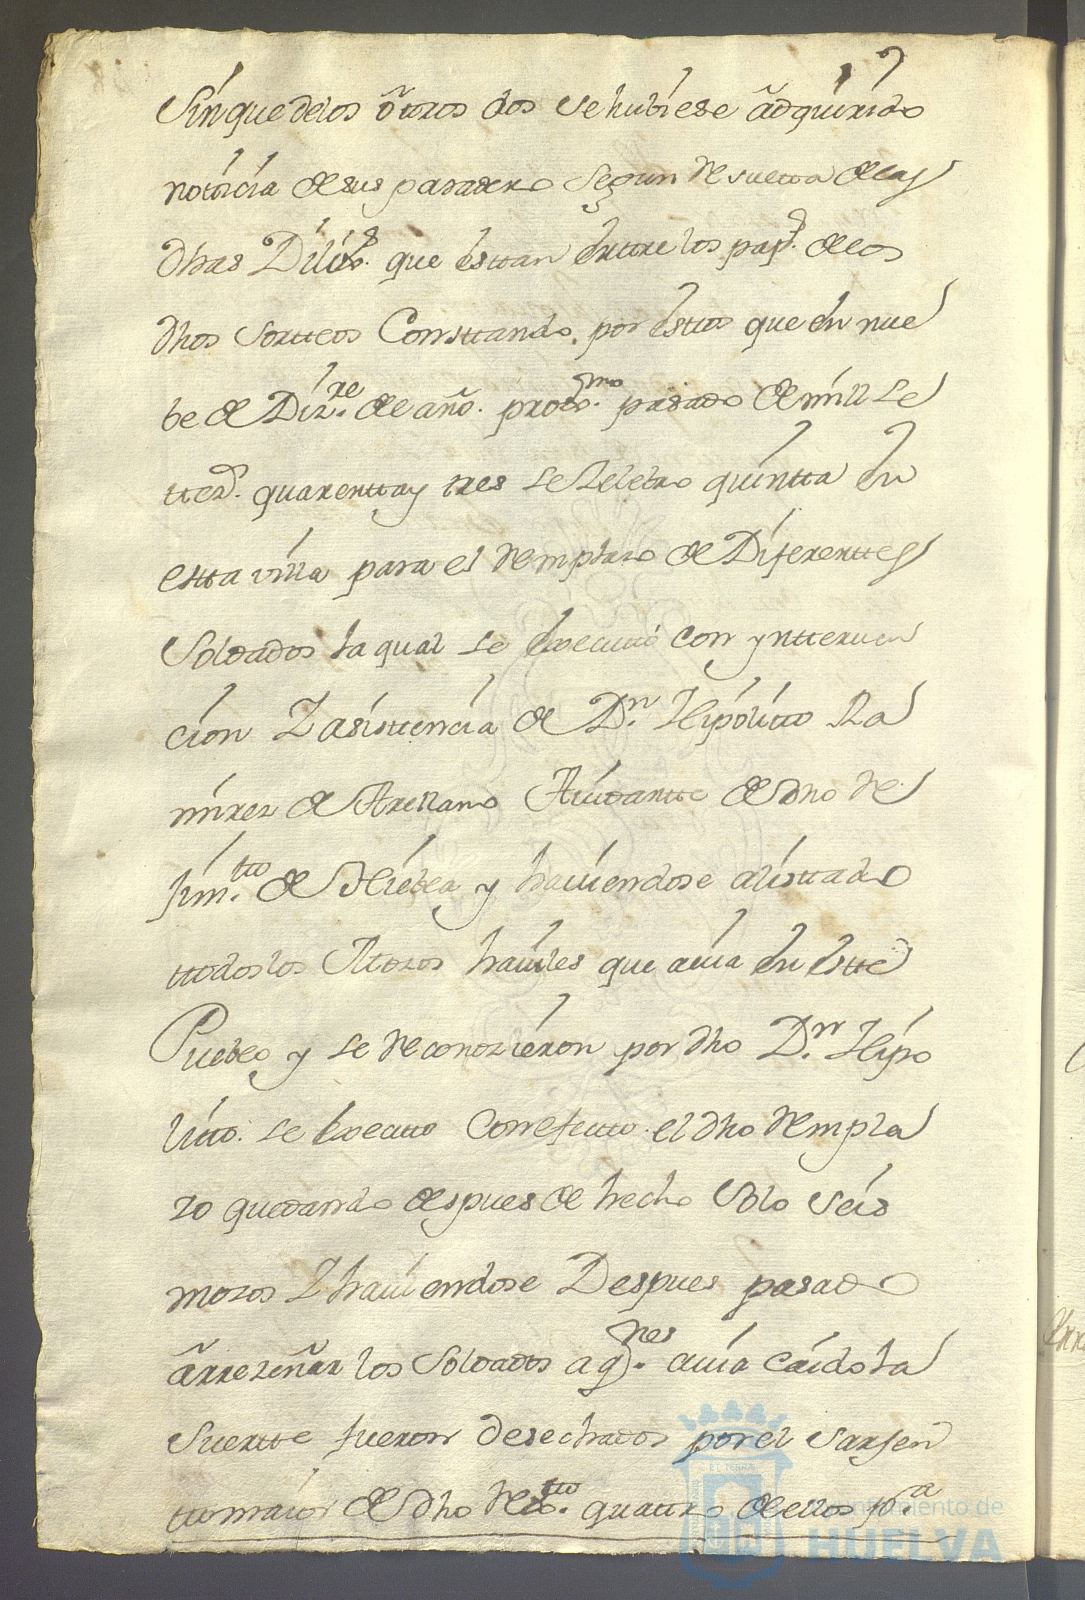 Sin que de los otros dos se hubiese adquirido
noticia de sus paradero Segun Resultta de las
dhas Dilix.s que esttan enttre los pap.s de los
dhos Sortteos Consttando por esttos que en nue
be de Diz.re de año prox.mo pasado de mill se
ttez.s quarentta y tres se Zelebro quintta en
estta villa para el Remplazo de Diferenttes
Soldados la qual se Executtó con yntterven
cion Y asisttencia de D.n Hipolitto Ra
mirez de Arellano Aiudantte de dho Re
Jim.tto de Niebla y haviendose alisttado
ttodos los Mozos haviles que avia en estte
Pueblo y se Reconozieron por dho D.n Hipo
litto se Executto Con efectto el dho Rempla
zo quedando despues de hecho Solo Seis
mozos Y haviendose Despues pasado
a rrezeñar los Soldados a q.nes avia Caido la
Suertte fueron desechados por el Sarjen
tto maior de dho Re.tto quattro de ellos
Ayuntamiento de
HUELVA